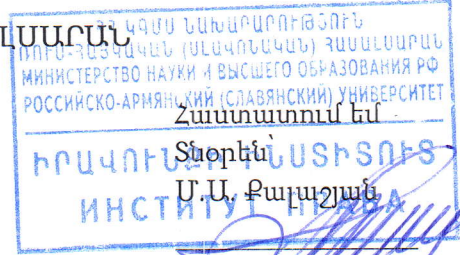 ԼՍԱՐԱՆ
ՀՀ ԿԳՄՍ ՆԱԽԱՐԱՐՈՒԹՅՈՒՆ
ՌՈՒՍ-ՀԱՅԿԱԿԱՆ (ՍԼԱՎՈՆԱԿԱՆ) ՀԱՄԱԼՍԱՐԱՆ
МИНИСТЕРСТВО НАУКИ И ВЫСШЕГО ОБРАЗОВАНИЯ РФ
РОССИЙСКО-АРМЯНСКИЙ (СЛАВЯНСКИЙ) УНИВЕРСИТЕТ
Հաստատում եմ
Տնօրեն՝
ԻՐԱՎՈՒՆՔԻ ԻՆՍՏԻՏՈՒՏ
Մ.Ա. Քալաշյան
ИНСТИТУТ ПРАВА